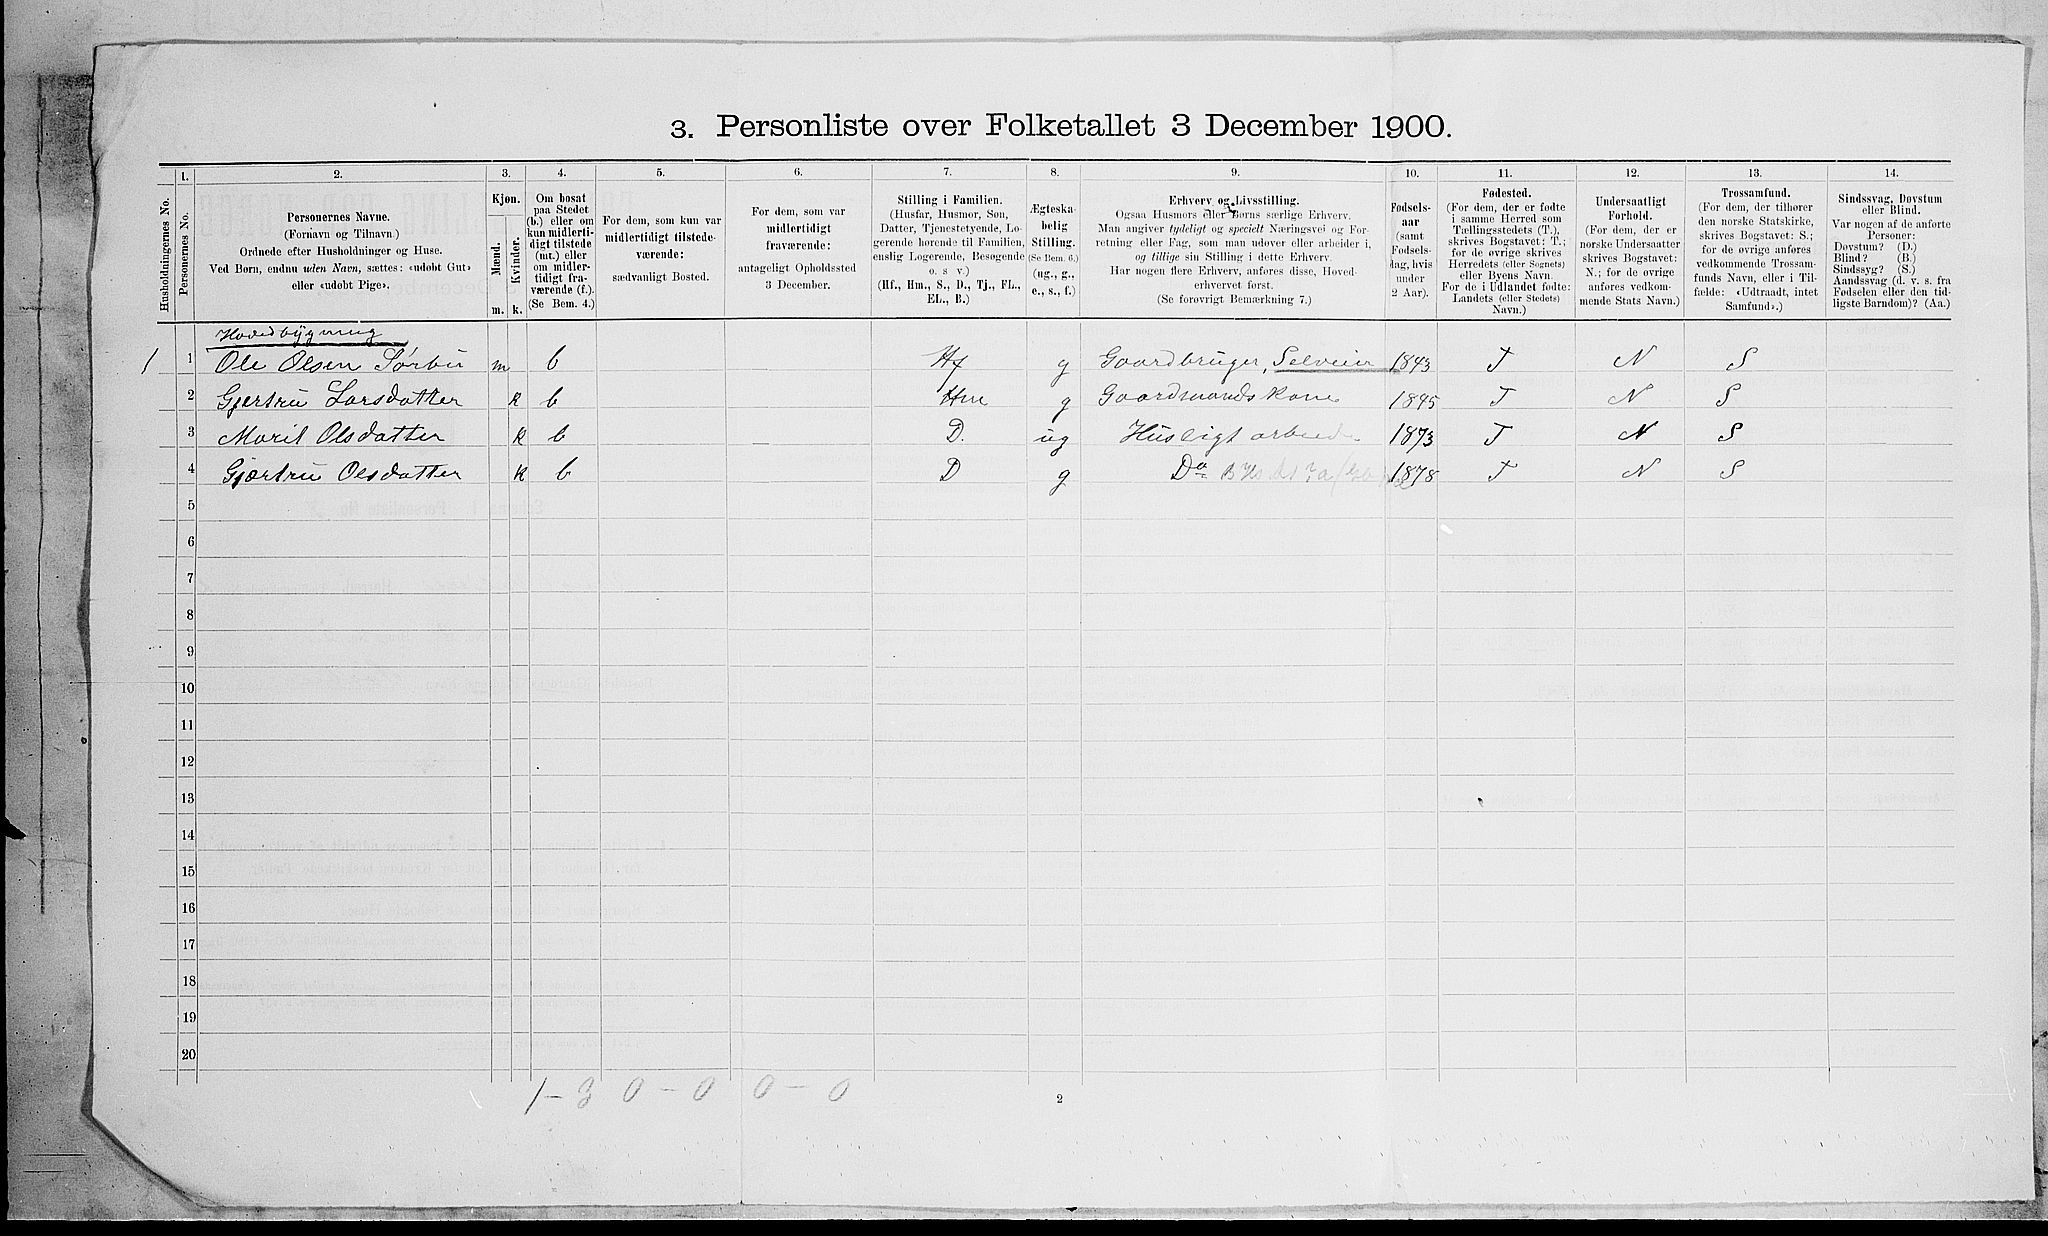 3. Personliste over Folketallet 3 December 1900.
1. 2. 3. 4. 5. 6. 7. 8. 9. 10. 11. 12. 13. 14.
Husholdningernes No.
Personernes No.
Personernes Navne.
(Fornavn og Tilnavn.)
Ordnede efter Husholdninger og Huse.
Ved Børn, endnu uden Navn, sættes: «udøbt Gut»
eller «udøbt Pige».
Kjøn.
Mænd.
Kvinder.
m. k.
Om bosat
paa Stedet
(b.) eller om
kun midlerti-
digt tilstede
(mt.) eller
om midler-
tidigt fra-
værende (f.).
(Se Bem. 4.)
For dem, som kun var
midlertidigt tilstede-
værende:
sædvanligt Bosted.
For dem, som var
midlertidigt
fraværende:
antageligt Opholdssted
3 December.
Stilling i Familien.
(Husfar, Husmor, Søn,
Datter, Tjenestetyende, Lo-
gerende hørende til Familien,
enslig Logerende, Besøgende
o. s. v.)
(Hf., Hm., S., D., Tj., FL.,
EL., B.)
Ægteska-
belig
Stilling.
(Se Bem. 6.)
(ug., g.,
e., s., f.)
Erhverv og Livsstilling.
Ogsaa Husmors eller Børns særlige Erhverv.
Man angiver tydeligt og specielt Næringsvei og For-
retning eller Fag, som man udøver eller arbeider i,
og tillige sin Stilling i dette Erhverv.
Har nogen flere Erhverv, anføres disse, Hoved-
erhvervet først.
(Se forøvrigt Bemærkning 7.)
Fødsels-
aar
(samt
Fødsels-
dag, hvis
under
2 Aar).
Fødested.
(For dem, der er fødte
i samme Herred som
Tællingsstedets (T.),
skrives Bogstavet: T.;
for de øvrige skrives
Herredets (eller Sognets)
eller Byens Navn.
For de i Udlandet fødte:
Landets (eller Stedets)
Navn.)
Undersaatligt
Forhold.
(For dem, der er
norske Undersaatter
skrives Bogstavet:
N.; for de øvrige
anføres vedkom-
mende Stats Navn.)
Trossamfund.
(For dem, der tilhører
den norske Statskirke,
skrives Bogstavet: S.;
for de øvrige anføres
vedkommende Trossam-
funds Navn, eller i Til-
fælde: «Udtraadt, intet
Samfund».)
Sindssvag, Døvstum
eller Blind.
Var nogen af de anførte
Personer:
Døvstum? (D.)
Blind? (B.)
Sindssyg? (S.)
Aandssvag (d. v. s. fra
Fødselen eller den tid-
ligste Barndom)? (Aa.)
Hovedbygning
1 1 Ole Olsen Sørbu m b Hf g Gaardbruger, Selveier 1843 T N S
2 Gjertru Larsdatter k b Hm g Gaardmandskone 1845 T N S
3 Marit Olsdatter k b D. ug Husligt arbeide 1873 T N S
4 Gjertru Olsdatter k b D g Do 1878 T N S
5
6
7
8
9
10
11
12
13
14
15
16
17
18
19
20
1 - 3 0 - 0 0 - 0
2